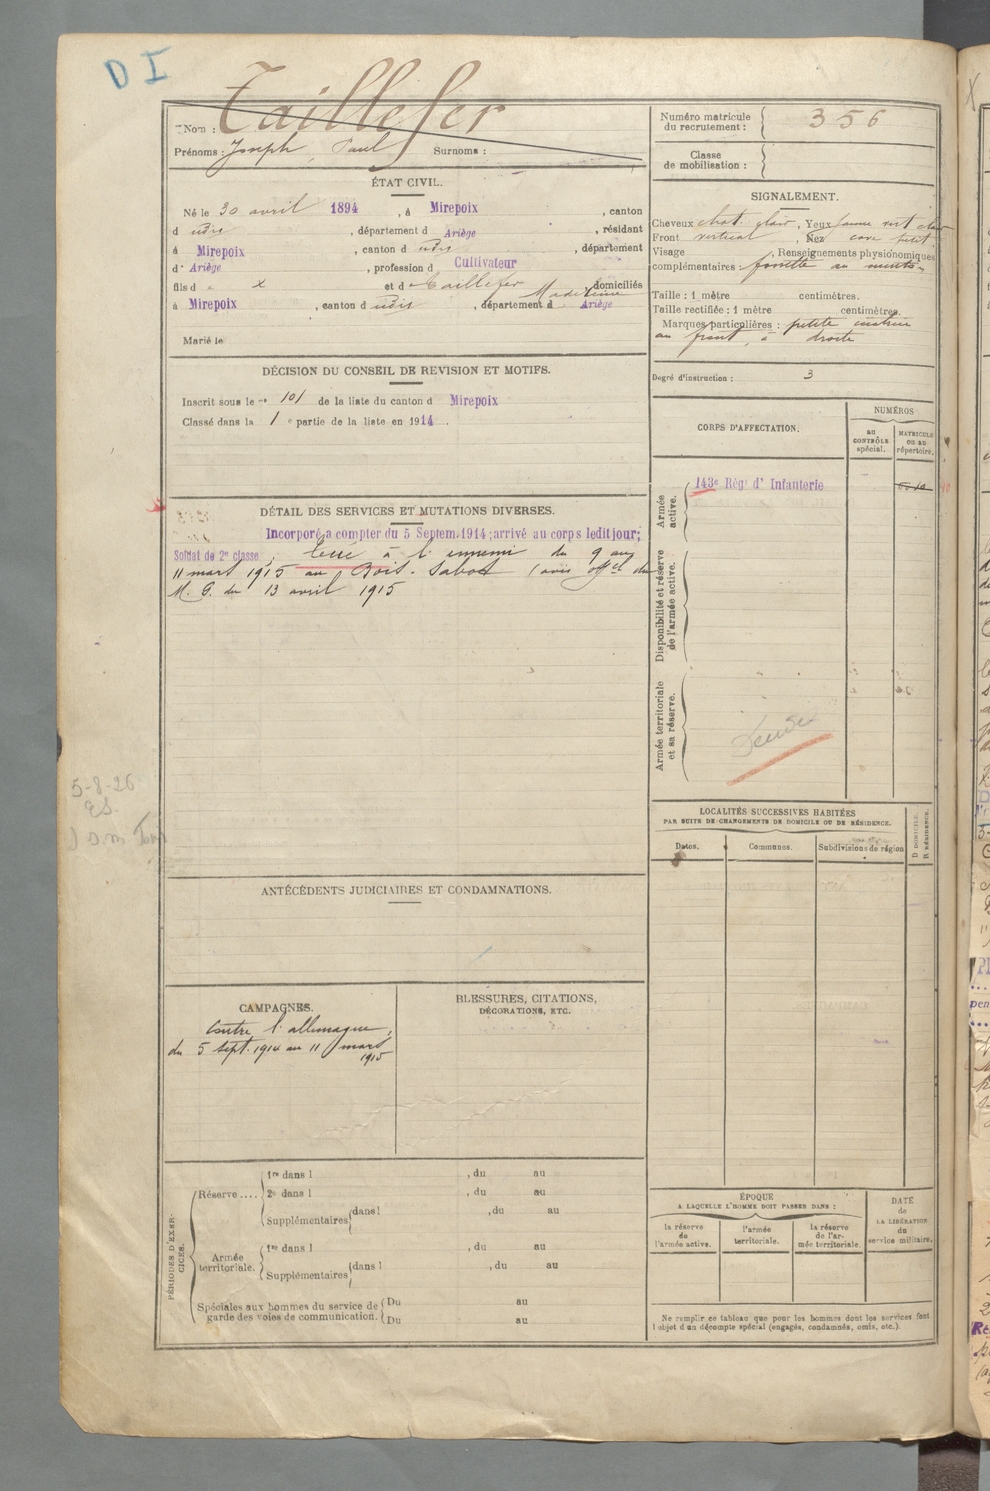 D I
Nom : Taillefer
Prénoms : Joseph, Paul Surnoms :
Numéro matricule du recrutement : 356
Classe de mobilisation :
ÉTAT CIVIL.
Né le 30 avril 1894, à Mirepoix, canton
d udis, département d Ariège, résidant
à Mirepoix, canton d udis, département
d' Ariège, profession d Cultivateur
fils d e x et d e Taillefer Madeleine, domiciliés
à Mirepoix, canton d udis, département d Ariège
Marié le
SIGNALEMENT.
Cheveux chat. clair, Yeux jaune vert clair
Front vertical, Nez cave petit
Visage , Renseignements physionomiques
complémentaires : fossette au menton
Taille : 1 mètre centimètres.
Taille rectifiée : 1 mètre centimètres.
Marques particulières : petite cicatrice
au front, à droite
Degré d'instruction : 3
DÉCISION DU CONSEIL DE REVISION ET MOTIFS.
Inscrit sous le n° 101 de la liste du canton d Mirepoix
Classé dans la 1 e partie de la liste en 1914.
CORPS D'AFFECTATION.
NUMÉROS
au CONTRÔLE spécial.
MATRICULE ou au répertoire.
Armée active.
143e Rég.t d' Infanterie
Disponibilité et réserve de l'armée active.
Armée territoriale et sa réserve.
DÉTAIL DES SERVICES ET MUTATIONS DIVERSES.
Incorporé a compter du 5 Septem. 1914; arrivé au corps ledit jour;
Soldat de 2e classe, tué à l'ennemi du 9 au
11 mars 1915 au Bois-Sabot (avis offel du
M. G. du 13 avril 1915
5-8-26
ANTÉCÉDENTS JUDICIAIRES ET CONDAMNATIONS.
LOCALITÉS SUCCESSIVES HABITÉES
PAR SUITE DE CHANGEMENTS DE DOMICILE OU DE RÉSIDENCE.
Dates.
Communes.
Subdivisions de région
D DOMICILE.
R RÉSIDENCE.
CAMPAGNES.
Contre l'allemagne,
du 5 sept. 1914 au 11 mars
1915
BLESSURES, CITATIONS,
DÉCORATIONS, ETC.
PÉRIODES D'EXERCICES.
Réserve ....
1re dans l , du au
2e dans l , du au
Supplémentaires dans l , du au
Armée territoriale.
1re dans l , du au
Supplémentaires dans l , du au
Spéciales aux hommes du service de
garde des voies de communication.
Du au
Du au
ÉPOQUE
A LAQUELLE L'HOMME DOIT PASSER DANS :
la réserve de l'armée active.
l'armée territoriale.
la réserve de l'armée territoriale.
DATE de LA LIBÉRATION du service militaire.
Ne remplir ce tableau que pour les hommes dont les services font
l'objet d'un décompte spécial (engagés, condamnés, omis, etc.).